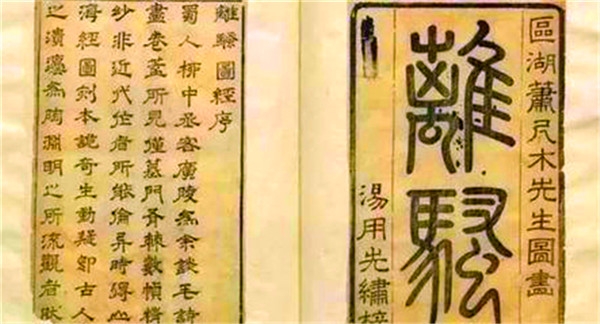 區湖蕭尺木先生圖畫
離騷
湯用先繡梓
離騷圖經序
蜀人柳中丞客廣陵為余談毛詩
畫卷蓋所見僅墓門斧棘數幀精
紗非近代作者所能倫異時得山
海經圖刻本詭奇生動疑卽古人
之為陶淵明之所流觀者